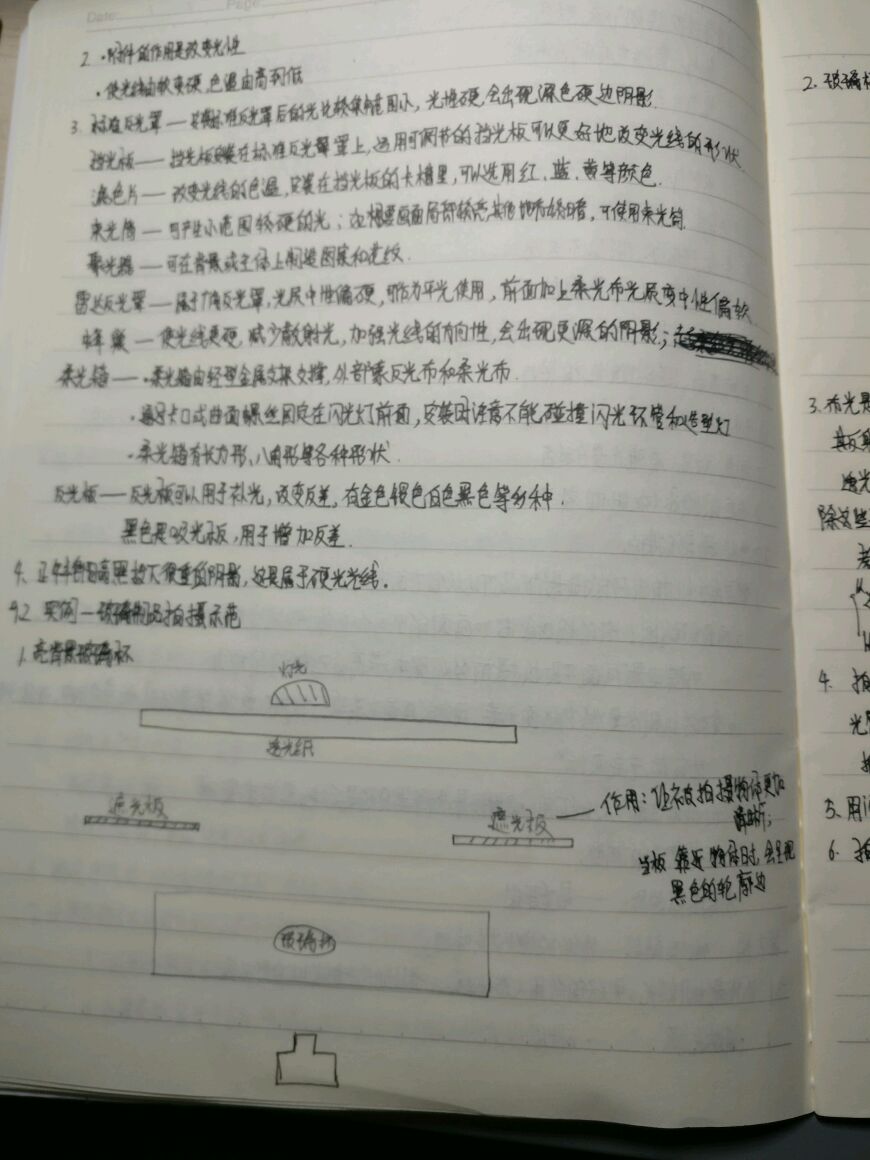 Date: Page:
2. ·附件的作用是改变光性
·使光线由软变硬,色温由高到低
3. 标准反光罩——安装标准反光罩后的光比较集中范围小,光性硬,会出现深色硬边阴影.
挡光板——挡光板安装在标准反光罩上,运用可调节的挡光板可以更好地改变光线的形状.
滤色片——改变光线的色温,安装在挡光板的卡槽里,可以选用红、蓝、黄等颜色.
束光筒——可产生小范围较硬的光;如想要画面局部较亮其他地方较暗,可使用束光筒.
聚光器——可在背景或主体上制造图案和花纹.
雷达反光罩——属于广角反光罩,光质中性偏硬,可作为平光使用,前面加上柔光布光质变中性偏软.
蜂巢——使光线更硬,减少散射光,加强光线的方向性,会出现更深的阴影;
柔光箱——·柔光箱由轻型金属支架支撑,外部蒙反光布和柔光布.
·通过卡口或曲面螺丝固定在闪光灯前面,安装时注意不能碰撞闪光环管和造型灯
·柔光箱有长方形、八角形等各种形状.
反光板——反光板可以用于补光,改变反差,有金色银色白色黑色等多种.
黑色是吸光板,用于增加反差.
4. 正午时阳高照投下很重的阴影,这是属于硬光光线.
4.2 实例一玻璃制品拍摄示范
1. 亮背景玻璃杯
灯光
透光纸
遮光板
遮光板——作用:让被拍摄物体更加
清晰;
当板靠近物体时,会呈现
黑色的轮廓边
玻璃杯
2. 玻璃杯
3. 布光是
其反射
透光
除这些
4. 拍
光
5. 用
6. 拍